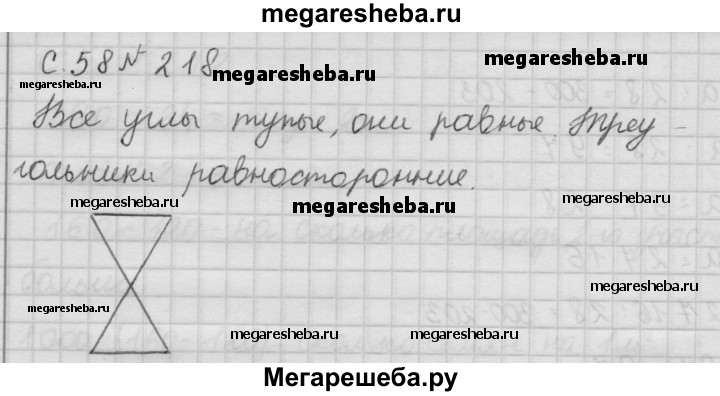 megaresheba.ru
С. 58 № 218
megaresheba.ru
megaresheba.ru
megaresheba.ru
Все углы тупые, они равные. Треу-
гольники равносторонние.
megaresheba.ru
megaresheba.ru
megaresheba.ru
megaresheba.ru
megaresheba.ru
megaresheba.ru
Мегарешеба.ру